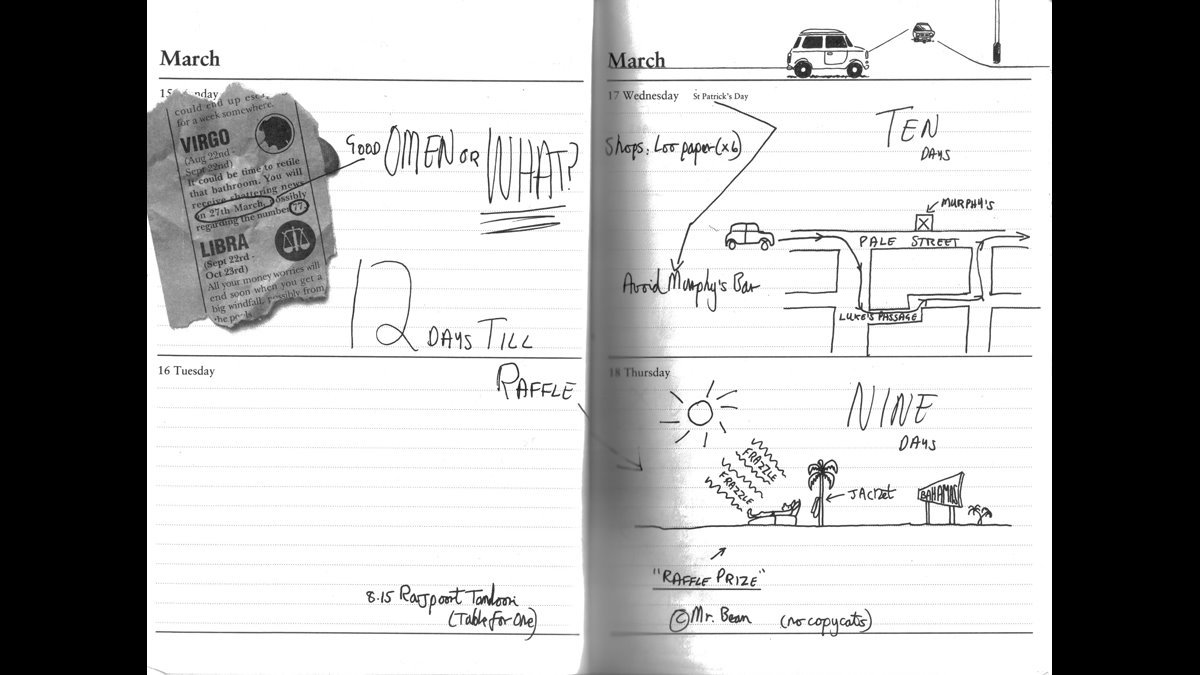 March
15
nday
could end up
for a week somewhere.
VIRGO
(Aug 22nd -
Sept 22nd)
It could be time to retile
that bathroom. You will
receive shattering news
on 27th March, possibly
regarding the number 77.
LIBRA
(Sept 22rd -
Oct 23rd)
All your money worries will
end soon when you get a
big windfall, possibly from
the
GOOD OMEN OR WHAT?
12 DAYS TILL
RAFFLE
16 Tuesday
8.15 Rajpoort Tandoori
(Table for One)
March
17 Wednesday St Patrick's Day
Shops: Loo paper (x6)
TEN
DAYS
MURPHY'S
X
PALE STREET
Avoid Murphy's Bar
LUKE'S PASSAGE
18 Thursday
NINE
DAYS
FRAZZLE
FRAZZLE
JACKET
BAHAMAS
"RAFFLE PRIZE"
© Mr. Bean (no copycats)